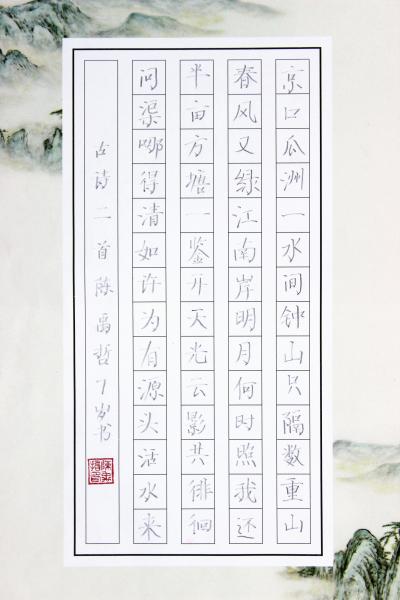 京口瓜洲一水间钟山只隔数重山
春风又绿江南岸明月何时照我还
半亩方塘一鉴开天光云影共徘徊
问渠哪得清如许为有源头活水来
古诗二首陈禹哲7岁书